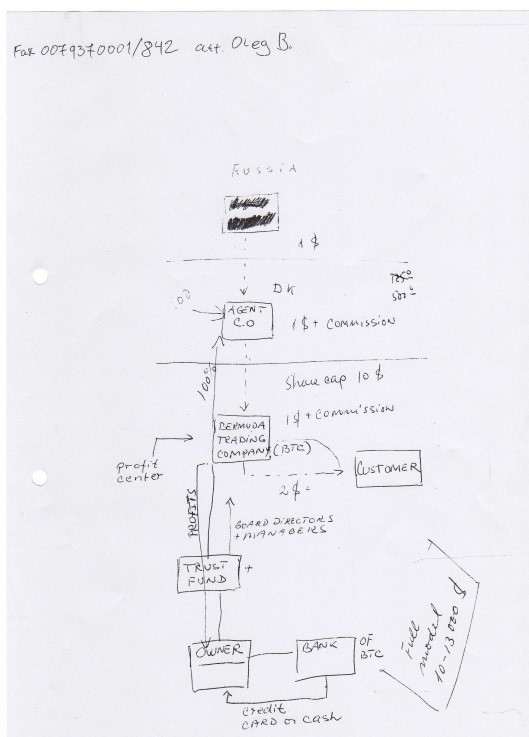 Fax 0079370001/842 att. Oleg B.
RUSSIA
1 $
DK
500
AGENT
C.O
1 $ + COMMISSION
100%
Share cap 10 $
1 $ + COMMISSION
BERMUDA
TRADING
COMPANY
(BTC)
profit
center
CUSTOMER
2 $ =
PROFITS
BOARD DIRECTORS
+ MANAGERS
TRUST
FUND
+
Full
model
10-13000 $
OWNER
BANK
OF
BTC
credit
CARD or cash